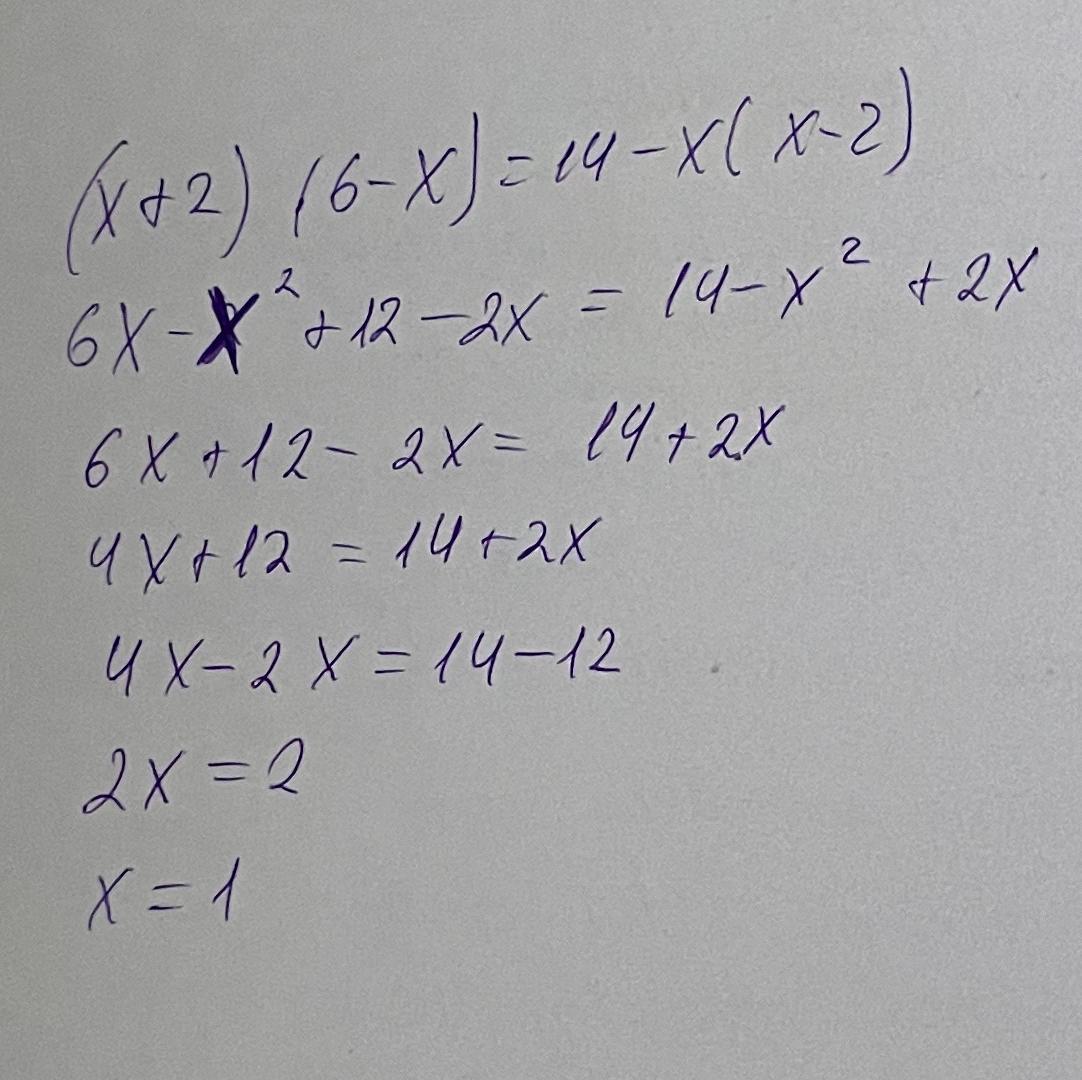 (x+2) (6-x)=14-x(x-2)
6x-x²+12-2x = 14-x²+2x
6x+12-2x= 14+2x
4x+12 = 14+2x
4x-2x=14-12
2x=2
x=1